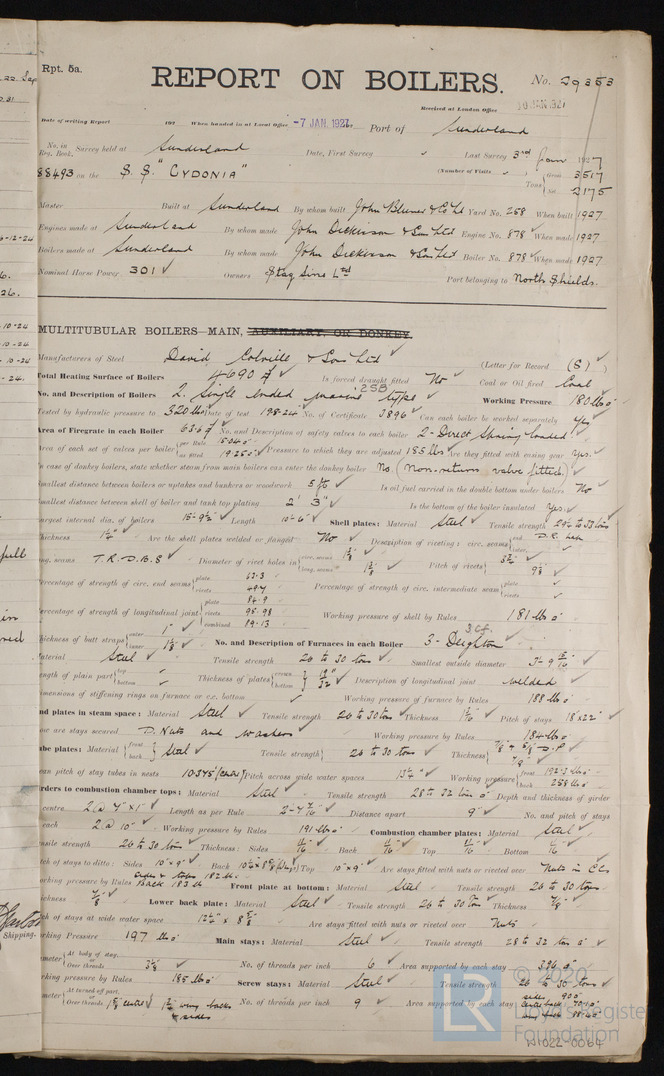 Rpt. 5a.
REPORT ON BOILERS.
No. 29353
Received at London Office 10 JAN 1927
Date of writing Report 192 When handed in at Local Office -7 JAN. 1927. Port of Sunderland
No. in Reg. Book. Survey held at Sunderland Date, First Survey Last Survey 3rd Jan 1927
88493 on the S.S. "CYDONIA" (Number of Visits ) Tons Gross 3517 Net 2175
Master Built at Sunderland By whom built John Blumer & Co Ltd Yard No. 258 When built 1927
Engines made at Sunderland By whom made John Dickinson & Sons Ltd Engine No. 878 When made 1927
Boilers made at Sunderland By whom made John Dickinson & Sons Ltd Boiler No. 878 When made 1927
Nominal Horse Power 301 Owners Stag Line Ltd Port belonging to North Shields
MULTITUBULAR BOILERS—MAIN, AUXILIARY, OR DONKEY.
Manufacturers of Steel David Colville & Sons Ltd (Letter for Record (S))
Total Heating Surface of Boilers 4690 Is forced draught fitted No Coal or Oil fired Coal
No. and Description of Boilers 2 Single ended marine type 2SB Working Pressure 180 lbs
Tested by hydraulic pressure to 320 lbs Date of test No. of Certificate 3896 Can each boiler be worked separately Yes
Area of Firegrate in each Boiler No. and Description of safety valves to each boiler 2 - Direct Spring loaded
Area of each set of valves per boiler per Rule as fitted 19.25 Pressure to which they are adjusted 185 lbs Are they fitted with easing gear Yes
In case of donkey boilers, state whether steam from main boilers can enter the donkey boiler No (non-return valve fitted)
Smallest distance between boilers or uptakes and bunkers or woodwork 5 ft Is oil fuel carried in the double bottom under boilers No
Smallest distance between shell of boiler and tank top plating 2' 3" Is the bottom of the boiler insulated Yes
Largest internal dia. of boilers 15'-9½" Length 10'-6" Shell plates: Material Steel Tensile strength
Thickness Are the shell plates welded or flanged No Description of riveting: circ. seams end D.R. Lap inter.
long. seams T.R.D.B.S Diameter of rivet holes in circ. seams long. seams Pitch of rivets
Percentage of strength of circ. end seams plate 62.3 rivets 49.4 Percentage of strength of circ. intermediate seam plate rivets
Percentage of strength of longitudinal joint plate 84.9 rivets 98.98 combined 89.13 Working pressure of shell by Rules 181 lbs
Thickness of butt straps outer 1" inner 1⅛" No. and Description of Furnaces in each Boiler 3 - Deighton 3 C.F.
Material Steel Tensile strength 26 to 30 tons Smallest outside diameter
Length of plain part top bottom Thickness of plates crown bottom Description of longitudinal joint welded
Dimensions of stiffening rings on furnace or c.c. bottom Working pressure of furnace by Rules 188 lbs
End plates in steam space: Material Steel Tensile strength 26 to 30 tons Thickness Pitch of stays 18" x 22"
How are stays secured D. Nuts and washers Working pressure by Rules 184 lbs
Tube plates: Material front back Steel Tensile strength 26 to 30 tons Thickness
Mean pitch of stay tubes in nests 10.375 Pitch across wide water spaces 13¼" Working pressure front back
Girders to combustion chamber tops: Material Steel Tensile strength 28 to 32 tons Depth and thickness of girder
at centre 2 @ 9" x 1" Length as per Rule Distance apart 9" No. and pitch of stays
in each 2 @ 10" Working pressure by Rules 191 lbs Combustion chamber plates: Material Steel
Tensile strength 26 to 30 tons Thickness: Sides Back Top Bottom
Pitch of stays to ditto: Sides 10" x 9" Back Top 10" x 9" Are stays fitted with nuts or riveted over Nuts in CCs
Working pressure by Rules Front plate at bottom: Material Steel Tensile strength 26 to 30 tons
Thickness ⅞" Lower back plate: Material Steel Tensile strength 26 to 30 tons Thickness ⅞"
Pitch of stays at wide water space Are stays fitted with nuts or riveted over Nuts
Working Pressure 197 lbs Main stays: Material Steel Tensile strength 28 to 32 tons
Diameter At body of stay, or Over threads No. of threads per inch 6 Area supported by each stay 396
Working pressure by Rules 185 lbs Screw stays: Material Steel Tensile strength 26 to 30 tons
Diameter At turned off part, or Over threads No. of threads per inch 9 Area supported by each stay
© 2020
Lloyd's Register
Foundation
LR
W1022-0064